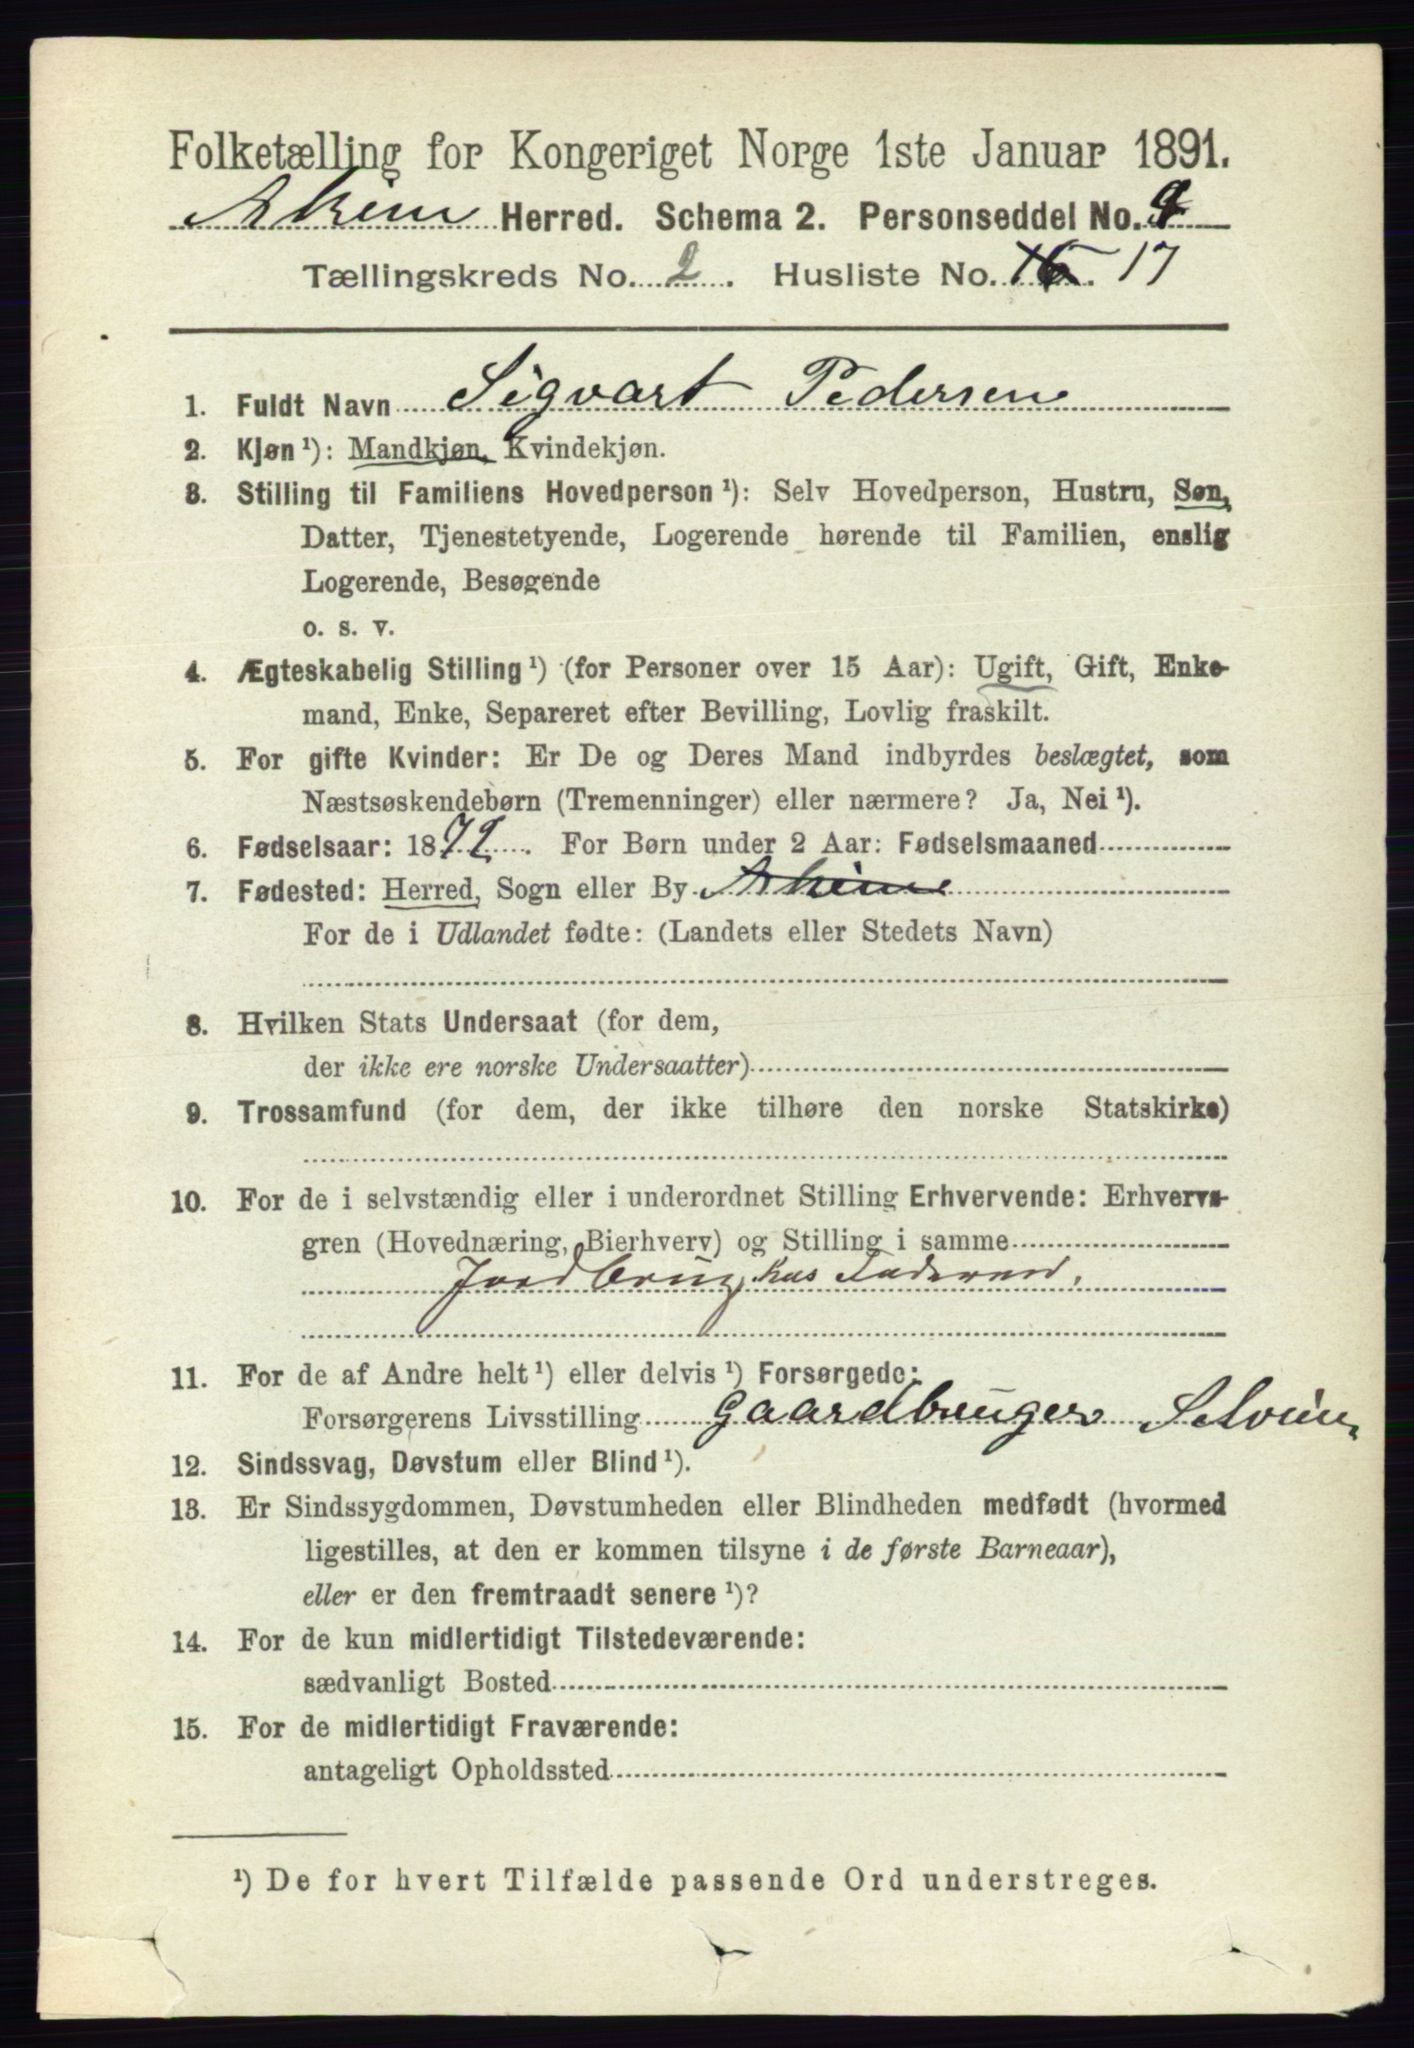 Folketælling for Kongeriget Norge 1ste Januar 1891.
Akim Herred. Schema 2. Personseddel No. 9
Tællingskreds No. 2. Husliste No. 16. 17
1. Fuldt Navn Sigvart Pedersen
2. Kjøn ¹): Mandkjøn, Kvindekjøn.
3. Stilling til Familiens Hovedperson ¹): Selv Hovedperson, Hustru, Søn,
Datter, Tjenestetyende, Logerende hørende til Familien, enslig
Logerende, Besøgende
o. s. v.
4. Ægteskabelig Stilling ¹) (for Personer over 15 Aar): Ugift, Gift, Enke-
mand, Enke, Separeret efter Bevilling, Lovlig fraskilt.
5. For gifte Kvinder: Er De og Deres Mand indbyrdes beslægtet, som
Næstsøskendebørn (Tremenninger) eller nærmere? Ja, Nei ¹).
6. Fødselsaar: 1872. For Børn under 2 Aar: Fødselsmaaned
7. Fødested: Herred, Sogn eller By Akim
For de i Udlandet fødte: (Landets eller Stedets Navn)
8. Hvilken Stats Undersaat (for dem,
der ikke ere norske Undersaatter)
9. Trossamfund (for dem, der ikke tilhøre den norske Statskirke)
10. For de i selvstændig eller i underordnet Stilling Erhvervende: Erhvervs-
gren (Hovednæring, Bierhverv) og Stilling i samme
Jordbrug, hos Faderen.
11. For de af Andre helt ¹) eller delvis ¹) Forsørgede:
Forsørgerens Livsstilling Gaardbruger Selveier
12. Sindssvag, Døvstum eller Blind ¹).
13. Er Sindssygdommen, Døvstumheden eller Blindheden medfødt (hvormed
ligestilles, at den er kommen tilsyne i de første Barneaar),
eller er den fremtraadt senere ¹)?
14. For de kun midlertidigt Tilstedeværende:
sædvanligt Bosted
15. For de midlertidigt Fraværende:
antageligt Opholdssted
¹) De for hvert Tilfælde passende Ord understreges.